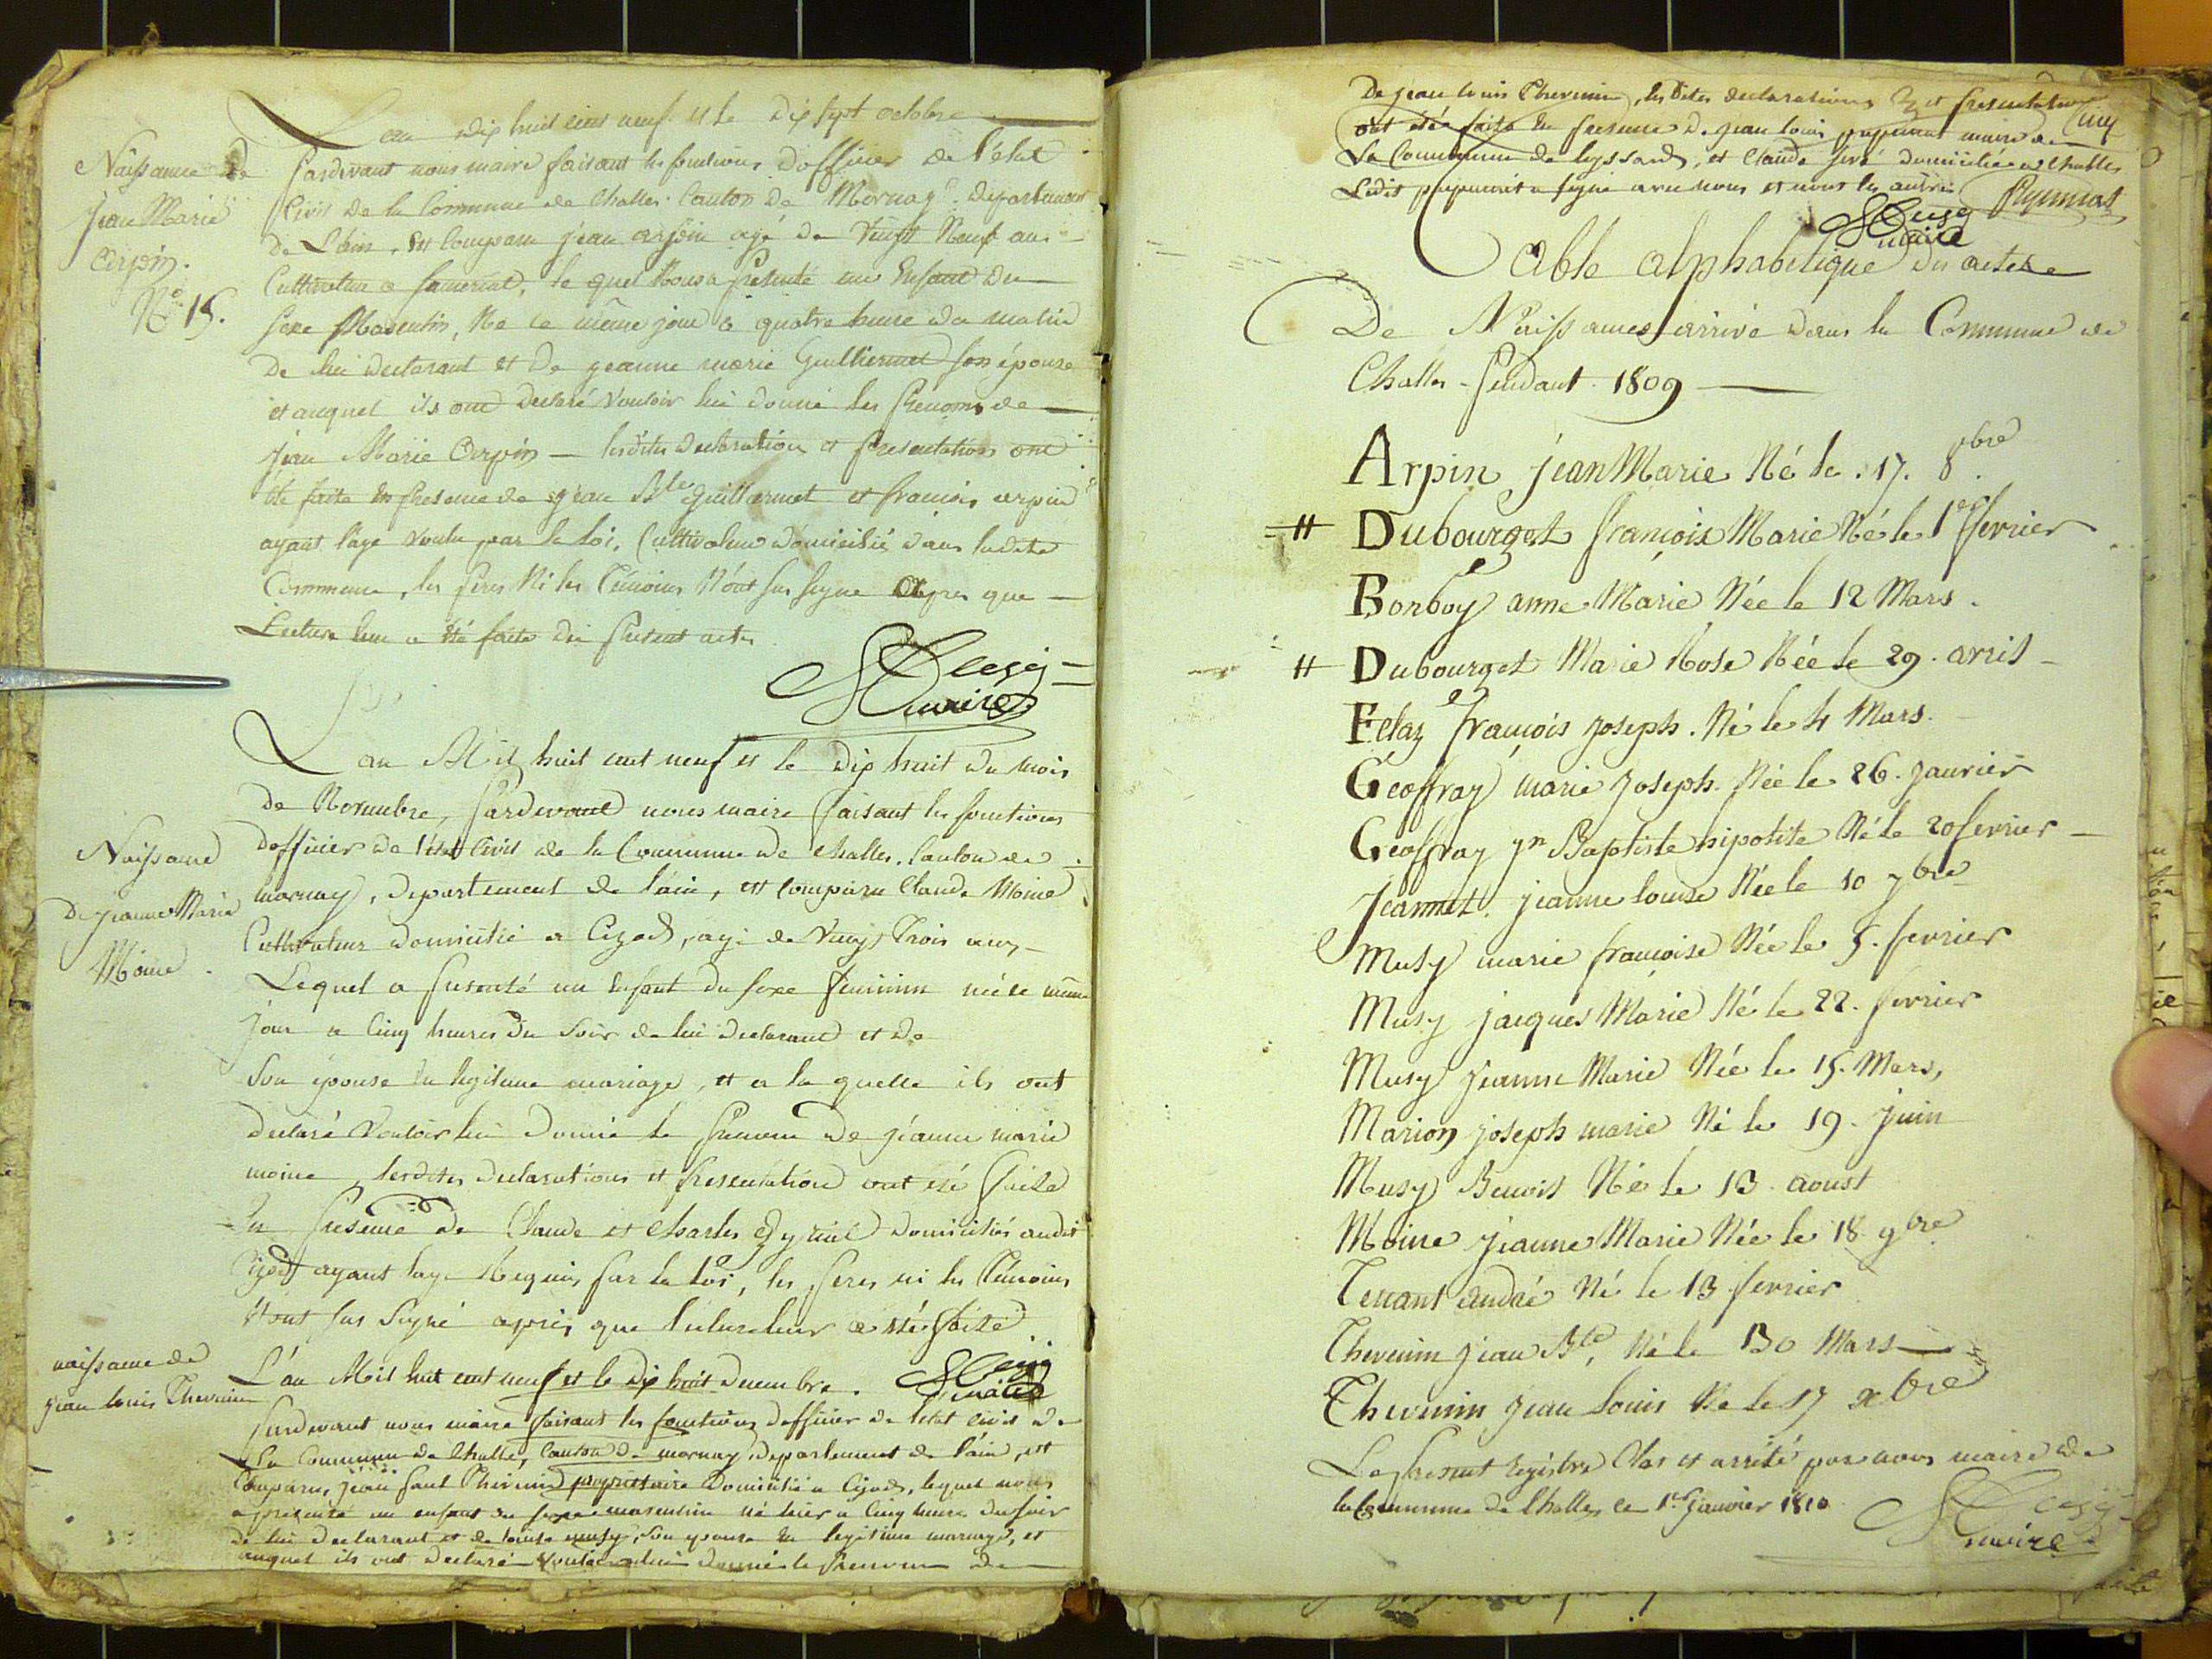 L'an dix huit cent neuf et le dix sept octobre
Naissance de
jean Marie
arpin.
No. 15.
Pardevant nous maire faisant les fonctions d'officier de l'état
Civil de la Commune de Challes Canton de Mornay. departement
De L'ain, est Comparu jean arpin agé de Vingt Neuf ans
Cultivateur a, le quel Nous a présenté un Enfant du
sexe Masculin, Né le même jour a quatre heure du matin
De lui declarant et De jeanne marie Guillermet son épouse
et auquel ils ont declaré Vouloir lui donné les Prenoms de
jean Marie Arpin – lesdites declaration et presentation ont
été faite en presence de jean Bte Guillermet et francois arpin
ayant l'age voulu par la loi, Cultivateur domicilié dans ladite
Commune, les peres Ni les Témoins N'ont pas signe après que
Lecture leur a été faite du present acte
maire
L'an Mil huit cent neuf et le dix huit du mois
De Novembre, Pardevant nous maire faisant les fonctions
Naissance
De jeanne Marie
Moine.
d'officier de l'état Civil de la Commune de Challes. Canton de
mornay, departement de l'ain, est comparu Claude Moine
Cultivateur domicilié a Cizod, agé de Vingt Trois ans,
Lequel a presenté un Enfant du sexe feminin née le même
jour a Cinq heures du Soir de lui declarant et de
Son épouse en legitime mariage, et a la quelle ils ont
declaré Vouloir lui donné le prenom de jeanne marie
moine, lesdites declarations et presentation ont été faite
En presence de Claude et Charles domiciliés audit
Cizod ayant l'age Requis par la loi, les peres ni les Témoins
N'ont pas signé après que lecture leur a été faite
naissance de
jean louis Thevenin
L'an Mil huit cent neuf et le dix huit decembre.
maire
Pardevant nous maire faisant les fonctions d'officier de l'état civil de
La Commune de Challe, Canton de mornay, departement de l'ain, est
Comparu, jean Thevenin propriétaire Domicilié a Cizod, lequel nous
a presenté un enfant du sexe masculin né hier a Cinq heures du soir
de lui declarant et de louise musy, son epouse en legitime mariage, et
auquel ils ont declaré vouloir lui donné le Prenom de
De jean louis Thevenin, les dites declarations et presentation
ont été faite en presence de jean louis maire de
La Commune de, et Claude domicilié a Challes
Ledit a signé avec nous et non les autres
maire
Table alphabetique des actes
De Naissances arrivé dans la Commune de
Challes Pendant 1809
Arpin jean Marie Né le. 17. 8bre
# Dubourget françois Marie Né le 1er fevrier
Bonboy anne Marie Née le 12 Mars.
# Dubourget Marie Rose Née le 29. avril
Felaz françois joseph. Né le 4 Mars.
Geoffray marie joseph. Née le 26. janvier
Geoffray jn Baptiste hipolite Né le 20 fevrier
Jeannet. jeanne louise Née le 10 7bre
Musy marie françoise Née le 5. fevrier
Musy jacques Marie Né le 22. fevrier
Musy jeanne Marie Née le 15. Mars,
Marion joseph marie Né le 19. juin
Musy Benoit Né le 13 aoust
Moine jeanne Marie Née le 18 9bre
Tenant andré Né le 13 fevrier
Thevenin jean Bte, Né le 30 Mars
Thevenin jean louis Né le 17 xbre
Le present registre Clos et arrêté par nous maire de
la Commune de Challes le 1er janvier 1810
maire